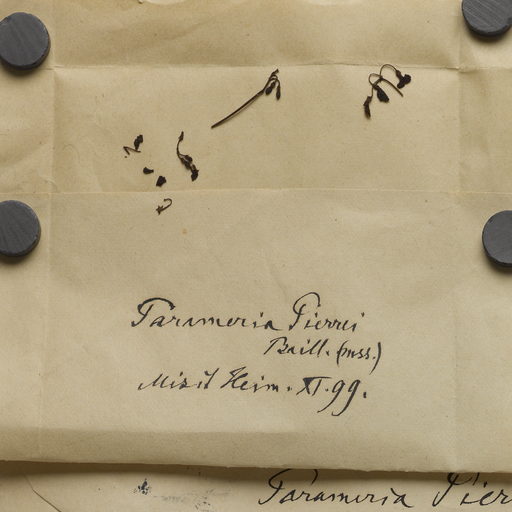 Parameria Pierrei
Baill. (mss.)
Misit Heim. XI. 99.
Parameria Pier